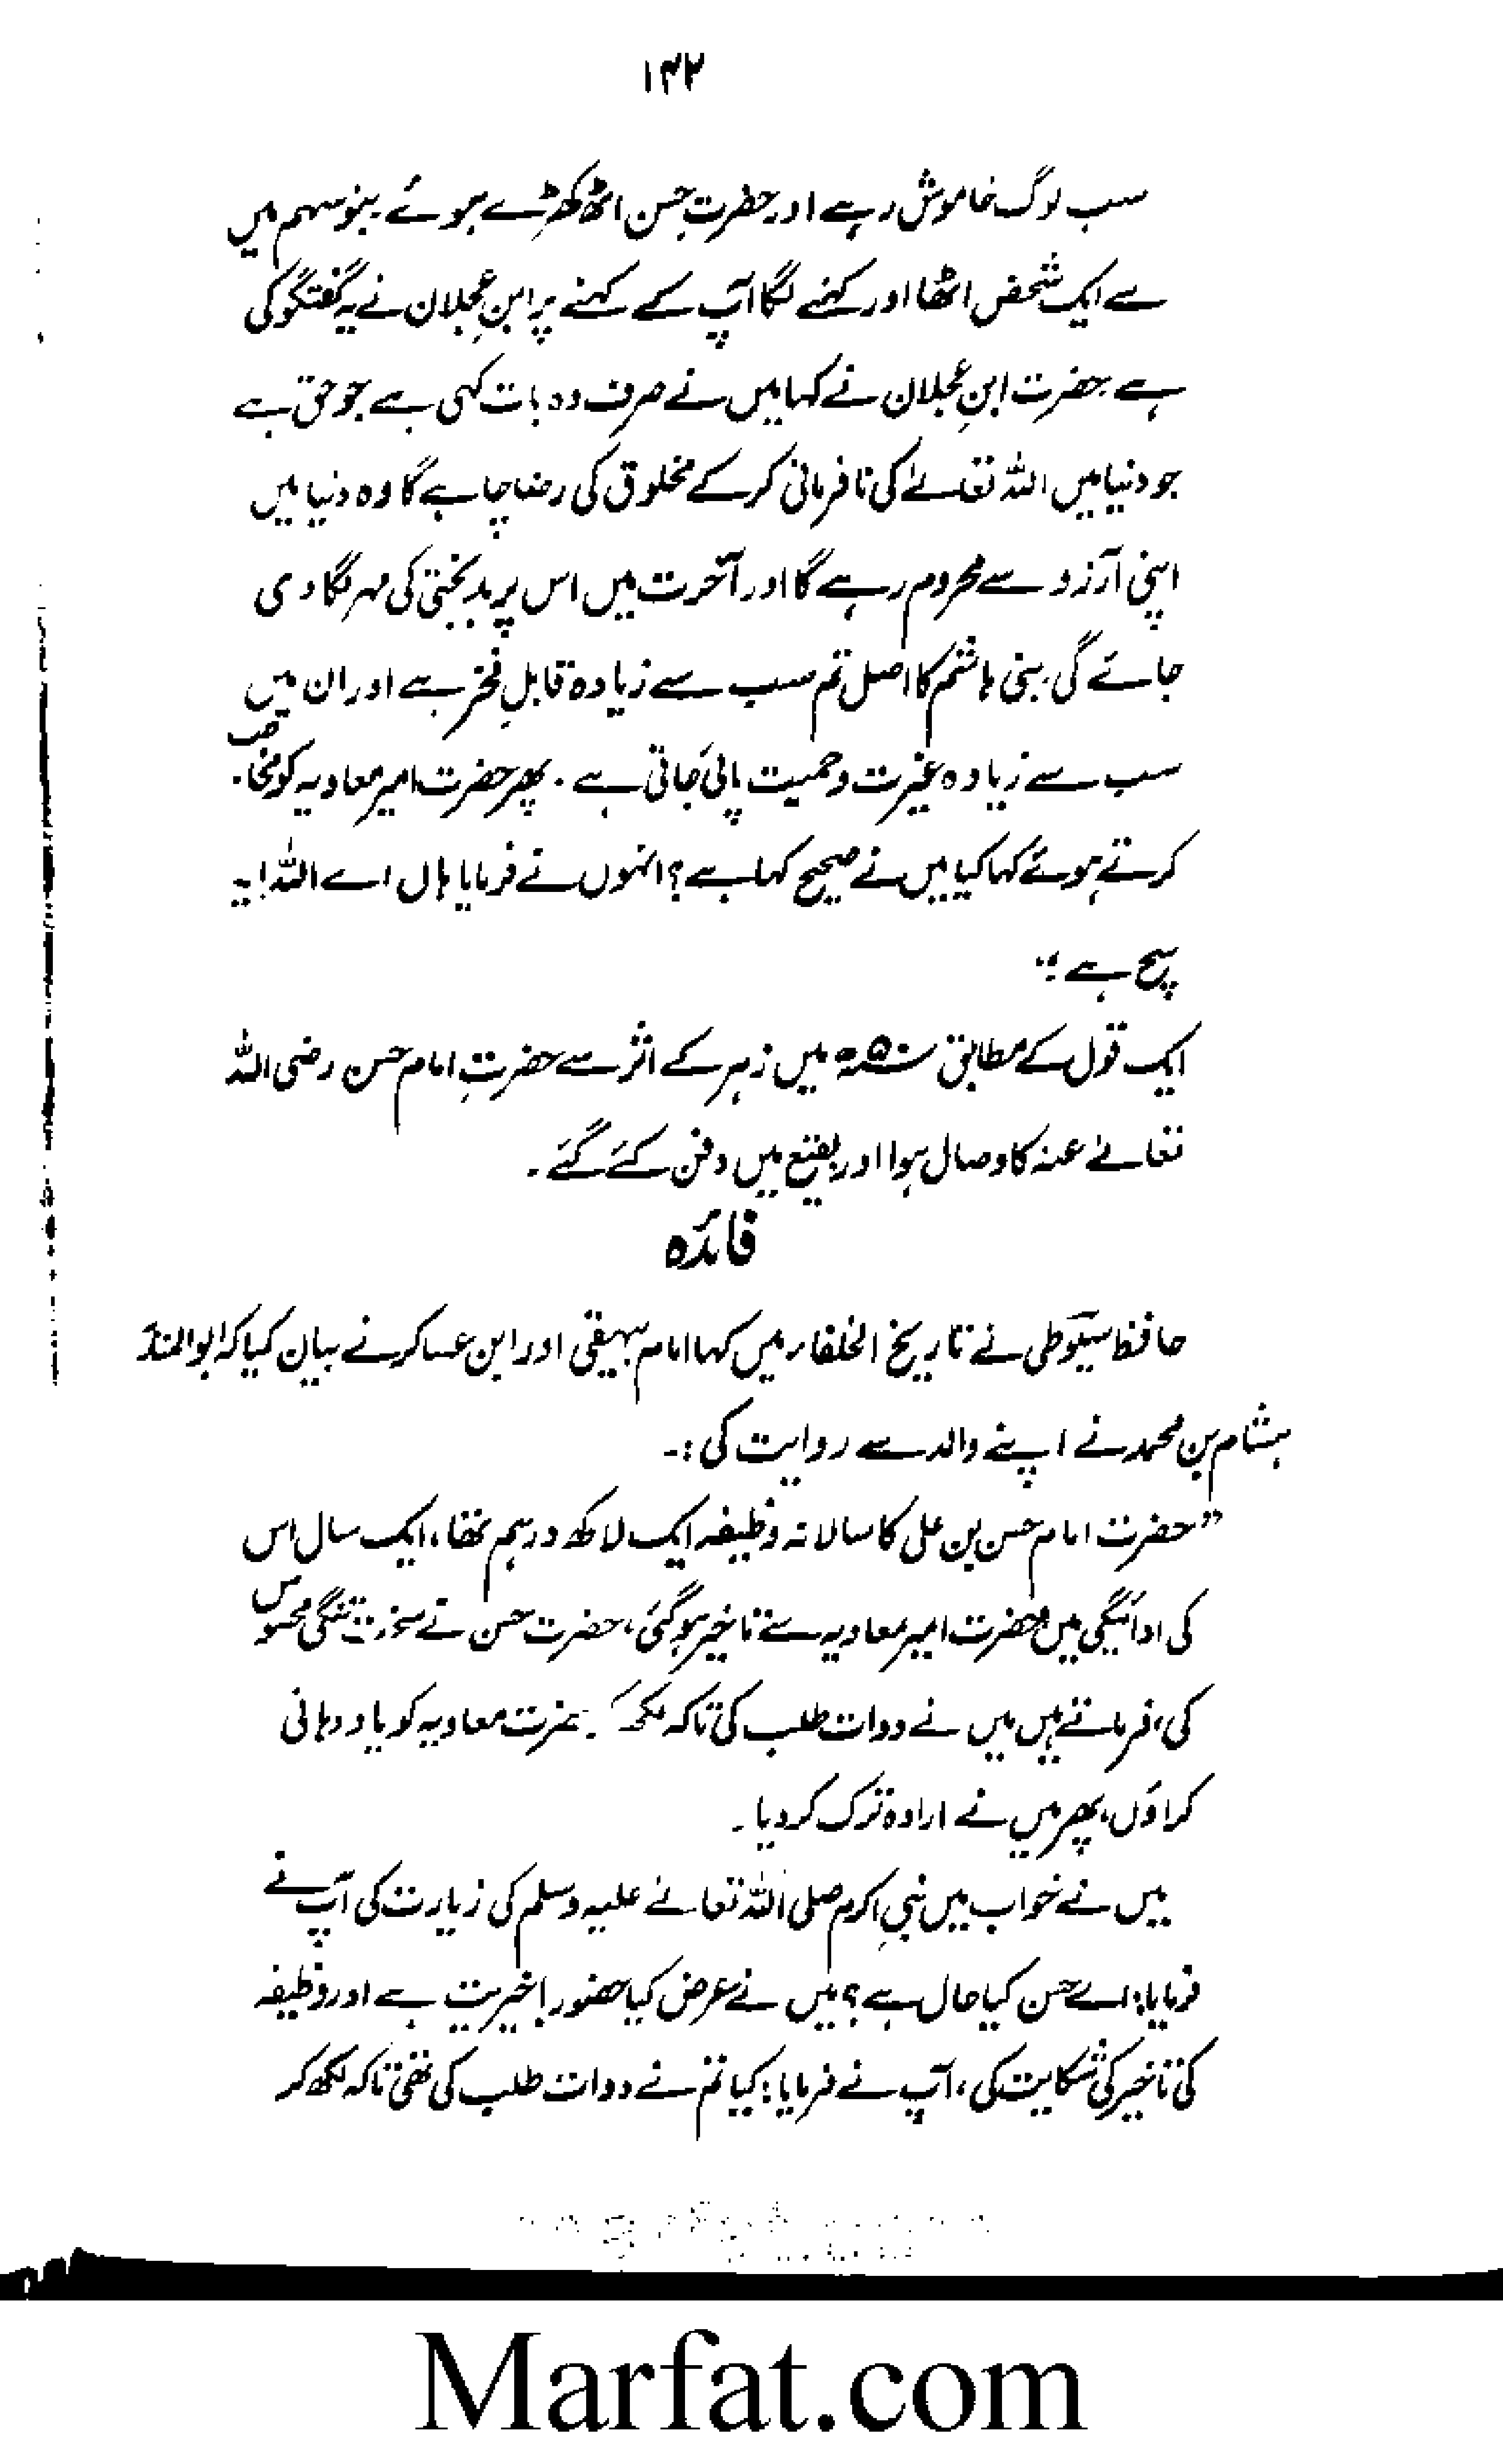 ۱۴۲
سب لوگ خاموش رہے اور حضرت حسن اٹھ کھڑے ہوئے۔ بنو سہم میں
سے ایک شخص اٹھا اور کہنے لگا آپ کے کہنے پر ابنِ عجلان نے یہ گفتگو کی
ہے حضرت ابنِ عجلان نے کہا میں نے صرف وہ بات کہی ہے جو حق ہے
جو دنیا میں اللہ تعالےٰ کی نافرمانی کر کے مخلوق کی رضا چاہے گا وہ دنیا میں
اپنی آرزو سے محروم رہے گا اور آخرت میں اس پر بدبختی کی مہر لگا دی
جائے گی۔ بنی ہاشم کا اصل تم سب سے زیادہ قابلِ فخر ہے اور ان میں
سب سے زیادہ غیرت و حمیت پائی جاتی ہے۔ پھر حضرت امیر معاویہ کو مخاطب
کرتے ہوئے کہا کیا میں نے صحیح کہا ہے؟ انہوں نے فرمایا ہاں اے اللہ! یہ
سچ ہے؛"
ایک قول کے مطابق ۵۰ھ میں زہر کے اثر سے حضرتِ امام حسن رضی اللہ
تعالےٰ عنہ کا وصال ہوا اور بقیع میں دفن کئے گئے۔
فائدہ
حافظ سیوطی نے تاریخ الخلفاء میں کہا امام بیہقی اور ابن عساکر نے بیان کیا کہ ابوالمنذر
ہشام بن محمد نے اپنے والد سے روایت کی:۔
"حضرت امام حسن بن علی کا سالانہ وظیفہ ایک لاکھ درہم تھا، ایک سال اس
کی ادائیگی میں حضرت امیر معاویہ سے تاخیر ہو گئی، حضرت حسن نے سخت تنگی محسوس
کی، فرماتے ہیں میں نے دوات طلب کی تاکہ لکھ کر حضرت معاویہ کو یاد دہانی
کراؤں، پھر میں نے ارادہ ترک کر دیا۔
میں نے خواب میں نبیِ اکرم صلی اللہ تعالےٰ علیہ وسلم کی زیارت کی آپ نے
فرمایا: اے حسن کیا حال ہے؟ میں نے عرض کیا حضور! خیریت ہے اور وظیفہ
کی تاخیر کی شکایت کی، آپ نے فرمایا: کیا تم نے دوات طلب کی تھی تاکہ لکھ کر
Marfat.com